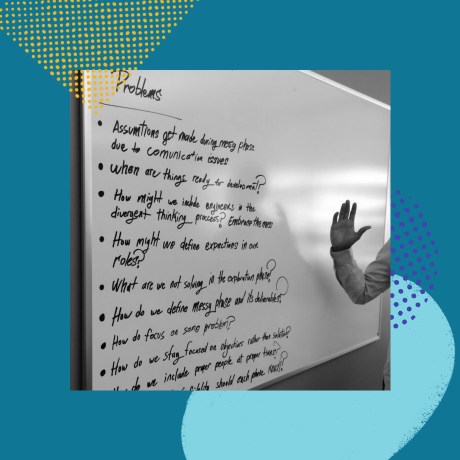 Problems
• Assumtions get made during messy phase
due to comunication issues
• When are things ready to development?
• How might we include engineers in the
divergent thinking process? Embrace the mess
• How might we define expectives in our
roles?
• What are we not solving in the exploration phase?
• How do we define messy phase and its deliverables?
• How do focus on same problem?
• How do we stay focused on objectives rather than solution?
• How do we include proper people at proper times?
should each phase need?